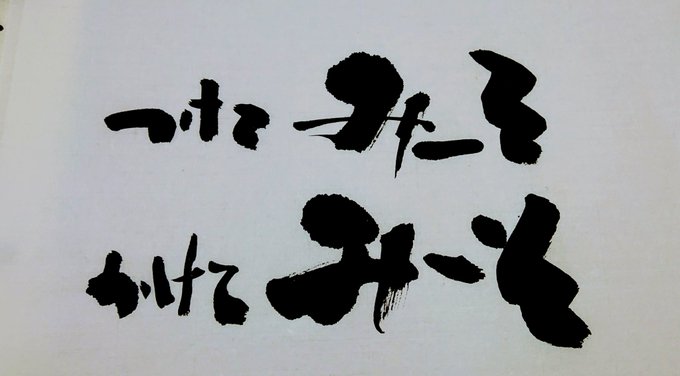 つけてみそ
かけてみそ